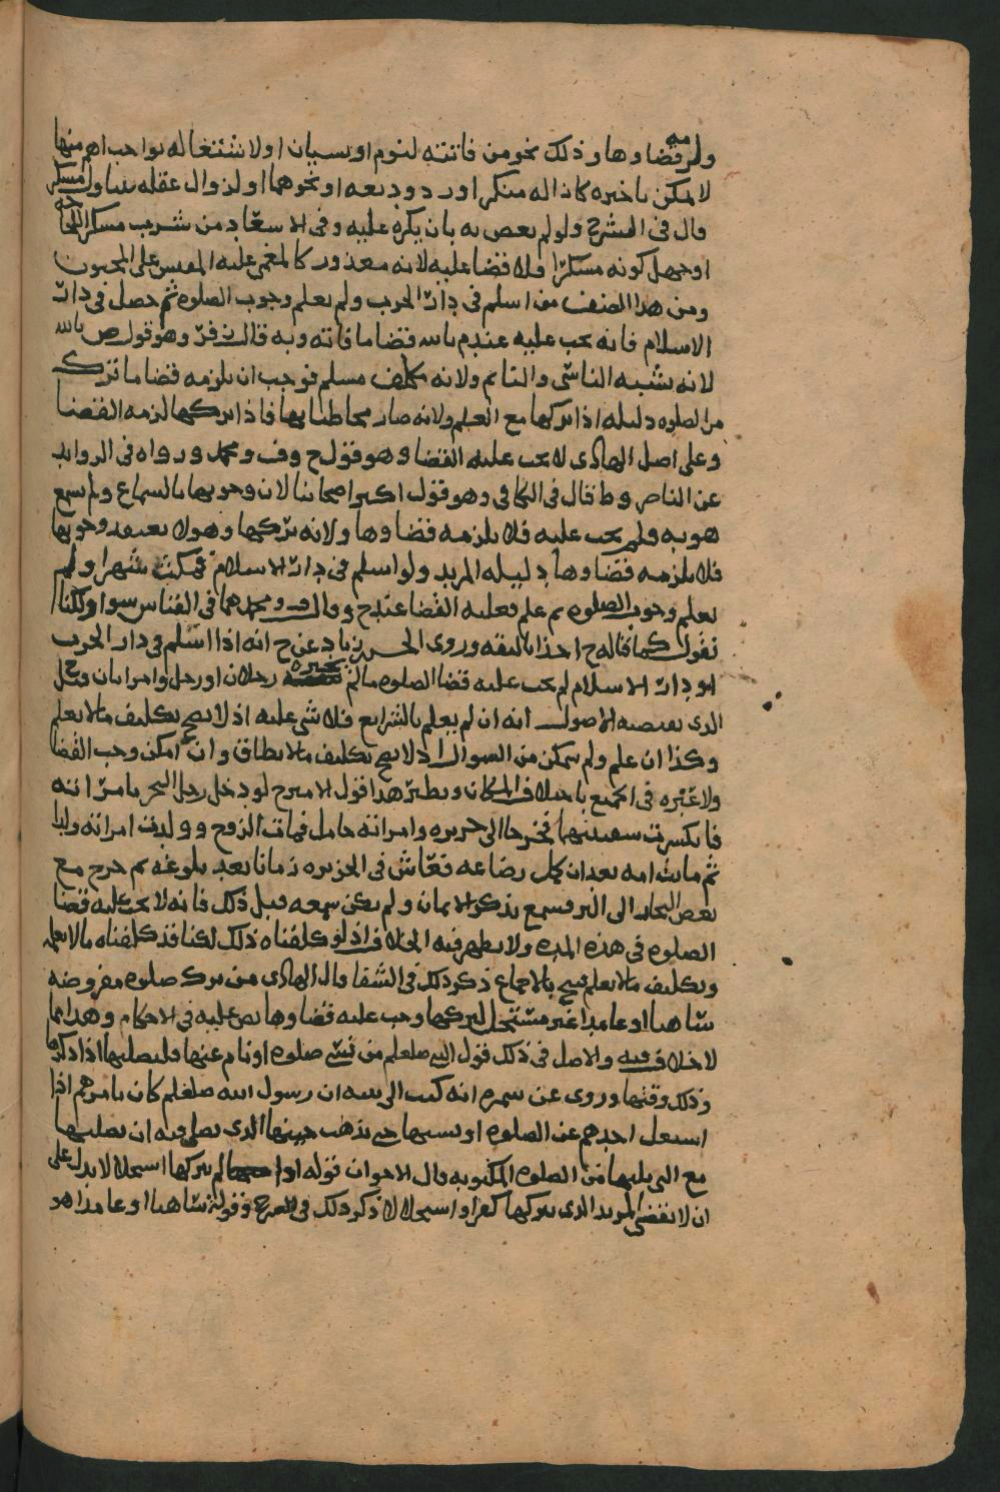 ولزمه قضاوها وذلك نحو من فاتته لنوم او نسيان او لاشتغاله بواجب اهم منها
لا يمكن تاخيره كازالة منكر او رد وديعه او نحوهما او لزوال عقله بتناول مسكر
قال في الشرح ولو لم يعص به بان يكره عليه وفي الاسعاد من شرب مسكرا
او جهل كونه مسكرا فلا قضا عليه لانه معذور كالمغمى عليه المقيس على المجنون
ومن هذا الصنف من اسلم في دار الحرب ولم يعلم وجوب الصلوه ثم حصل في دار
الاسلام فانه يجب عليه عندم بالله قضا ما فاته وبه قال زفر وهو قول ص بالله
لانه يشبه الناسي والنائم ولانه مكلف مسلم فوجب ان يلزمه قضا ما ترك
من الصلوه دليله اذا تركها مع العلم ولانه صار مخاطبا بها فاذا تركها لزمه القضا
وعلى اصل الهادى لا يجب عليه القضا وهو قول ح وف ومحمد ورواه في الزوايد
عن الناصر وط قال في الكافي وهو قول اكثر اصحابنا لان وجوبها بالسماع ولم يسمع
هو به فلم يجب عليه فلا يلزمه قضاوها ولانه تركها وهو لا يعتقد وجوبها
فلا يلزمه قضاوها دليله المرتد ولو اسلم في دار الاسلام فمكث شهرا ولم
يعلم وجوب الصلوه ثم علم فعليه القضا عند ح وقال ف ومحمد هما في القياس سوا ولكنا
نقول كما قاله ح اخذا بالثقه وروى الحسن بن زياد عن ح انه اذا اسلم في دار الحرب
او دار الاسلام لم يجب عليه قضا الصلوه مالم يخبره رجلان او رجل وامراتان
الذي يقتضيه الاصول انه ان لم يعلم بالشرايع فلا شي عليه اذ لا يصح تكليف مالا يعلم
وكذا ان علم ولم يتمكن من السوال اذ لا يصح تكليف مالا يطاق وان امكن وجب القضا
ولا عبره في الجميع باختلاف المكان ونظير هذا قول الامير ح لو دخل رجل البحر بامراته
فانكسرت سفينتهما فخرجا الى جزيره وامراته حامل فمات الزوج وولدت امراته ولدا
ثم ماتت امه بعد ان كمل رضاعه فعاش في الجزيره زمانا بعد بلوغه ثم خرج مع
بعض التجار الى البر فسمع بذكر الايمان ولم يكن سمعه قبل ذلك فانه لا يجب عليه قضا
الصلوه في هذه المده ولا يظهر فيه الخلاف اذ لو كلفناه ذلك لكنا قد كلفناه مالا يعلم
وتكليف مالا يعلم قبيح بالاجماع ذكر ذلك في الشفا قال الهادى من ترك صلوه مفروضه
ساهيا او عامدا غير مستحل لتركها وجب عليه قضاوها نص عليه في الاحكام وهذا مما
لا خلاف فيه والاصل في ذلك قول النبي صلعلم من نسي صلوه او نام عنها فليصليها اذا ذكرها
وذلك وقتها وروى عن سمره انه كتب الى بنيه ان رسول الله صلعلم كان يامرهم اذا
اشتغل احدهم عن الصلوه او نسيها حتى يذهب حينها الذي يصلي فيه ان يصليها
مع التي يليها من الصلوه المكتوبه قال الاخوان قوله لم يتركها استحلالا يدل على
ان لا يقضي المرتد الذي يتركها كفرا واستحلالا ذكر ذلك في الشرح وقوله ساهيا او عامدا هو